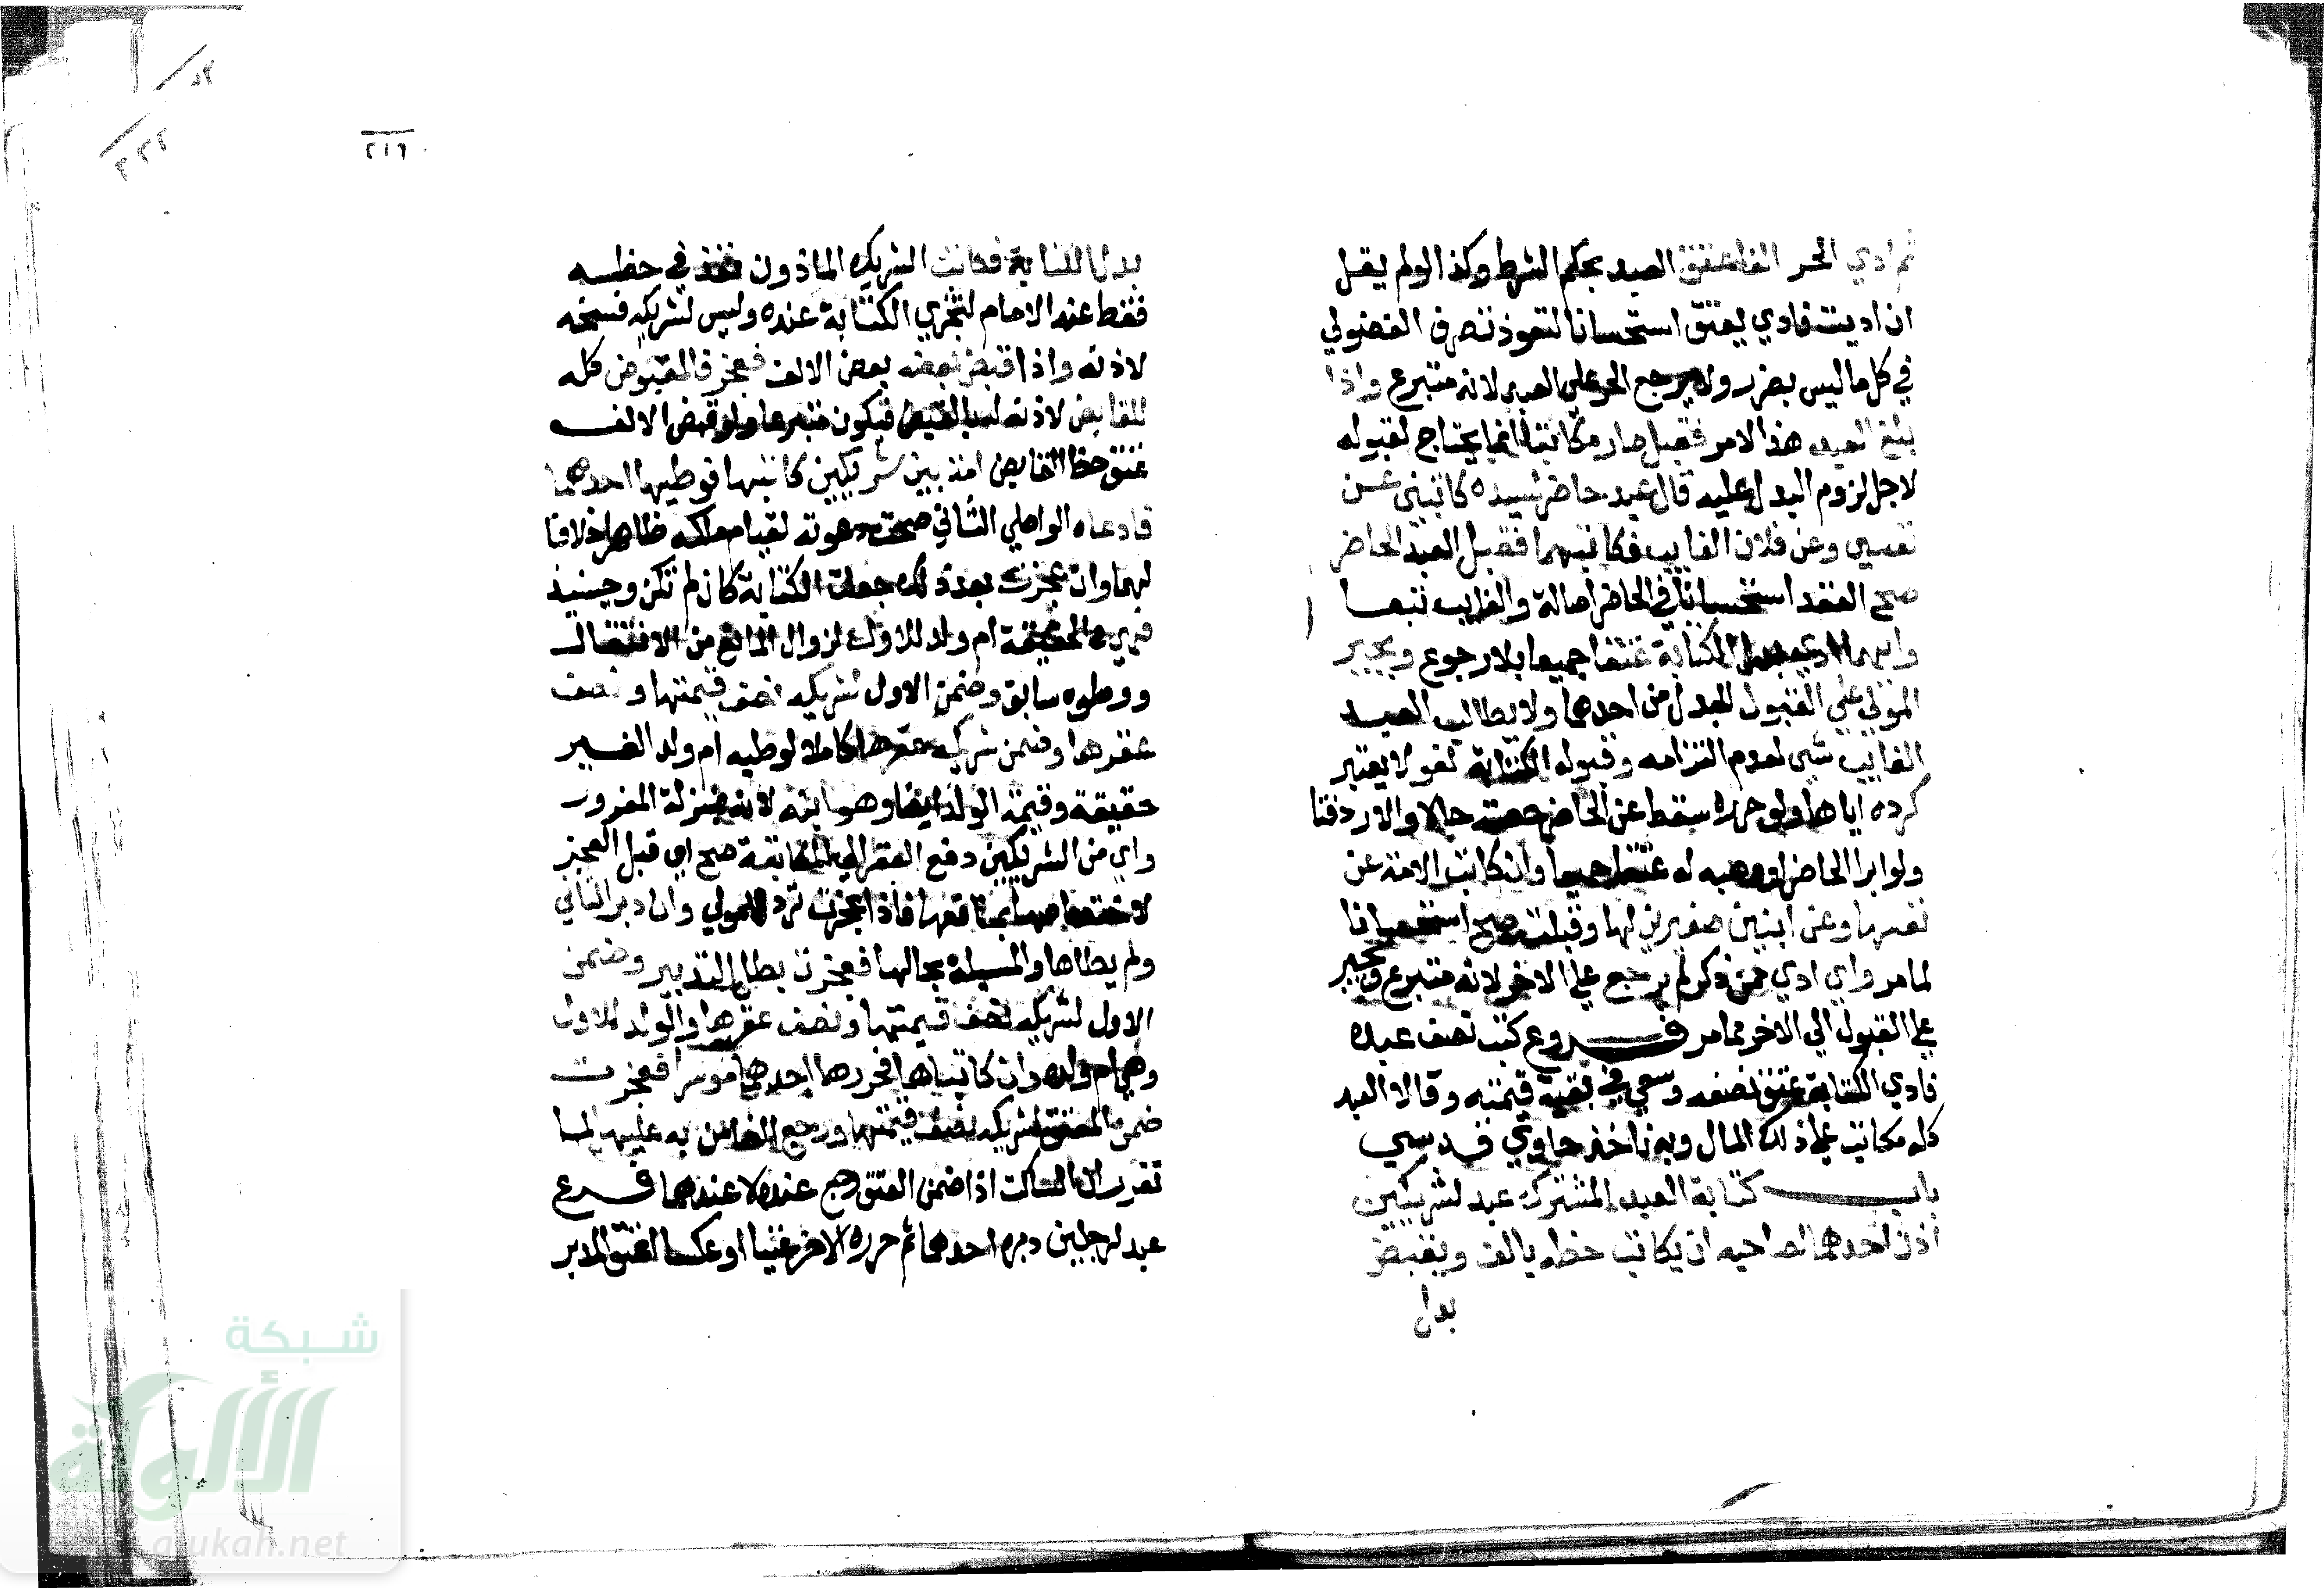 ثم ادي الحر الفا عتق العبد بحكم الشرط وكذا لولم يقل
ان اديت فادي يعتق استحسانا لنفوذ تصرف الفضولي
في كل ما ليس بضرر ولا يرجع الحر علي العبد لانه متبرع واذا
بلغ العبد هذا الامر فقبل صار مكاتبا انما يحتاج لقبوله
لاجل لزوم البدل عليه قال عبد حاضر لسيده كاتبني عن
نفسي وعن فلان الغايب فكاتبهما فقبل العبد الحاضر
صح العقد استحسانا في الحاضر اصالة والغايب تبعا
وايهما ادي بدل الكتابة عتقا جميعا بلا رجوع ويجبر
المولي علي القبول للبدل من احدهما ولا يطالب العبد
الغايب بشي لعدم التزامه وقبوله الكتابة لغو لا يعتبر
كرده اياها ولو حرره سقط عن الحاضر حصته حالا والا رد قنا
ولو ابرا الحاضر او وهبه له عتقا جميعا وان كاتب الامة عن
نفسها وعن ابنين صغيرين لها وقبلت صح استحسانا
لما مر واي ادي ممن ذكر لم يرجع علي الاخر لانه متبرع ويجبر
علي القبول الي الاخر مما مر فروع كتب نصف عبده
فادي الكتابة عتق نصفه وسعي في بقية قيمته وقالا العبد
كله مكاتب علي ذلك المال وبه ناخذ حاوي قدسي
باب كتابة العبد المشترك عبد لشريكين
اذن احدهما لصاحبه ان يكاتب حظه بالف ويقبض
بدل
٢١٦
بدل الكتابة فكاتب الشريك الماذون نفذ في حظه
فقط عند الامام لتجزي الكتابة عنده وليس لشريكه فسخه
لاذنه واذا قبض بعضه بعض الالف فعجز فالمقبوض كله
للقابض لاذنه له بالقبض فيكون متبرعا ولو قبض الالف
عتق حظ القابض امة بين شريكين كاتباها فوطيها احدهما
فادعاه الواطي الثاني صحت دعوته لقيام ملكه ظاهرا خلافا
لهما وان عجزت بعد ذلك جعلت الكتابة كان لم تكن وحينيذ
فهي في الحقيقة ام ولد للاول لزوال المانع من الانتقال
ووطوه سابق وضمن الاول لشريكه نصف قيمتها ونصف
عقرها وضمن شريكه عقرها كاملا لوطيه ام ولد الغير
حقيقة وقيمة الولد ايضا وهو ابنه لانه بمنزلة المغرور
واي من الشريكين دفع العقر الي المكاتبة صح اي قبل العجز
لاختصاصها بمنافعها فاذا عجزت ترد للمولي وان دبر الثاني
ولم يطاها والمسيلة بحالها فعجزت بطل التدبير وضمن
الاول لشريكه نصف قيمتها ونصف عقرها والولد للاول
وهي ام ولده وان كاتباها فحررها احدهما موسرا فعجزت
ضمن المعتق لشريكه نصف قيمتها ورجع الضامن به عليها لما
تقرر ان الساكت اذا ضمن المعتق رجع عنده لا عندهما فرع
عبد لرجلين دبره احدهما ثم حرره الاخر غنيا او عكسا اعتق المدبر
شبكة
الألوكة
alukah.net